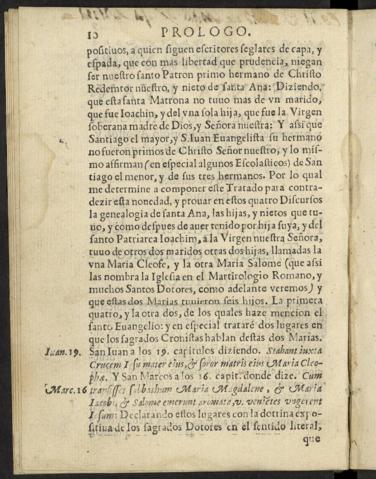 10 PROLOGO.
positiuos, a quien siguen escritores seglares de capa, y
espada, que con mas libertad que prudencia, niegan
ser nuestro santo Patron primo hermano de Christo
Redemtor nuestro, y nieto de santa Ana: Diziendo,
que esta santa Matrona no tuuo mas de vn marido,
que fue Ioachin, y del vna sola hija, que fue la Virgen
soberana madre de Dios, y Señora nuestra: Y assi que
Santiago el mayor, y S. Iuan Euangelista su hermano
no fueron primos de Christo Señor nuestro, y lo mis-
mo affirman (en especial algunos Escolasticos) de San
tiago el menor, y de sus tres hermanos. Por lo qual
me determine a componer este Tratado para contra-
dezir esta nouedad, y prouar en estos quatro Discursos
la genealogia de santa Ana, las hijas, y nietos que tu-
uo, y como despues de auer tenido por hija suya, y del
santo Patriarca Ioachim, a la Virgen nuestra Señora,
tuuo de otros dos maridos otras dos hijas, llamadas la
vna Maria Cleofe, y la otra Maria Salome (que assi
las nombra la Iglesia en el Martirologio Romano, y
muchos Santos Dotores, como adelante veremos) y
que estas dos Marias tuuieron seis hijos. La primera
quatro, y la otra dos, de los quales haze mencion el
santo Euangelio: y en especial tratarè dos lugares en
que los sagrados Cronistas hablan destas dos Marias.
Iuan. 19. San Iuan a los 19. capitulos diziendo. Stabant iuxta
Crucem Iesu mater eius, & soror matris eius Maria Cleo-
phæ. Y San Marcos a los 16. capit. donde dize. Cum
Marc. 16 transisset sabbathum Maria Magdalene, & Maria
Iacobi, & Salome emerunt aromata, v. veniētes vngerent
Iesum: Declarando estos lugares con la dottrina expo-
sitiua de los sagrados Dotores en el sentido literal,
que